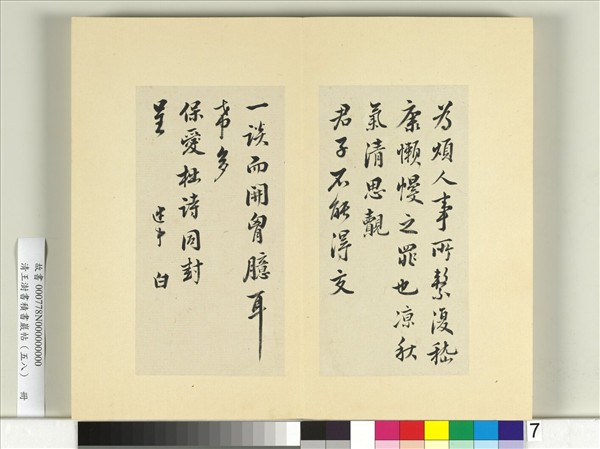 為煩人事所繫復嵇
康懶慢之罪也凉秋
氣清思覿
君子不能得交
一談而開胷臆耳
希多
保愛拙詩同封
呈
建中 白
故書 000778N000000000
清王澍書積書巖帖(五八) 冊
7